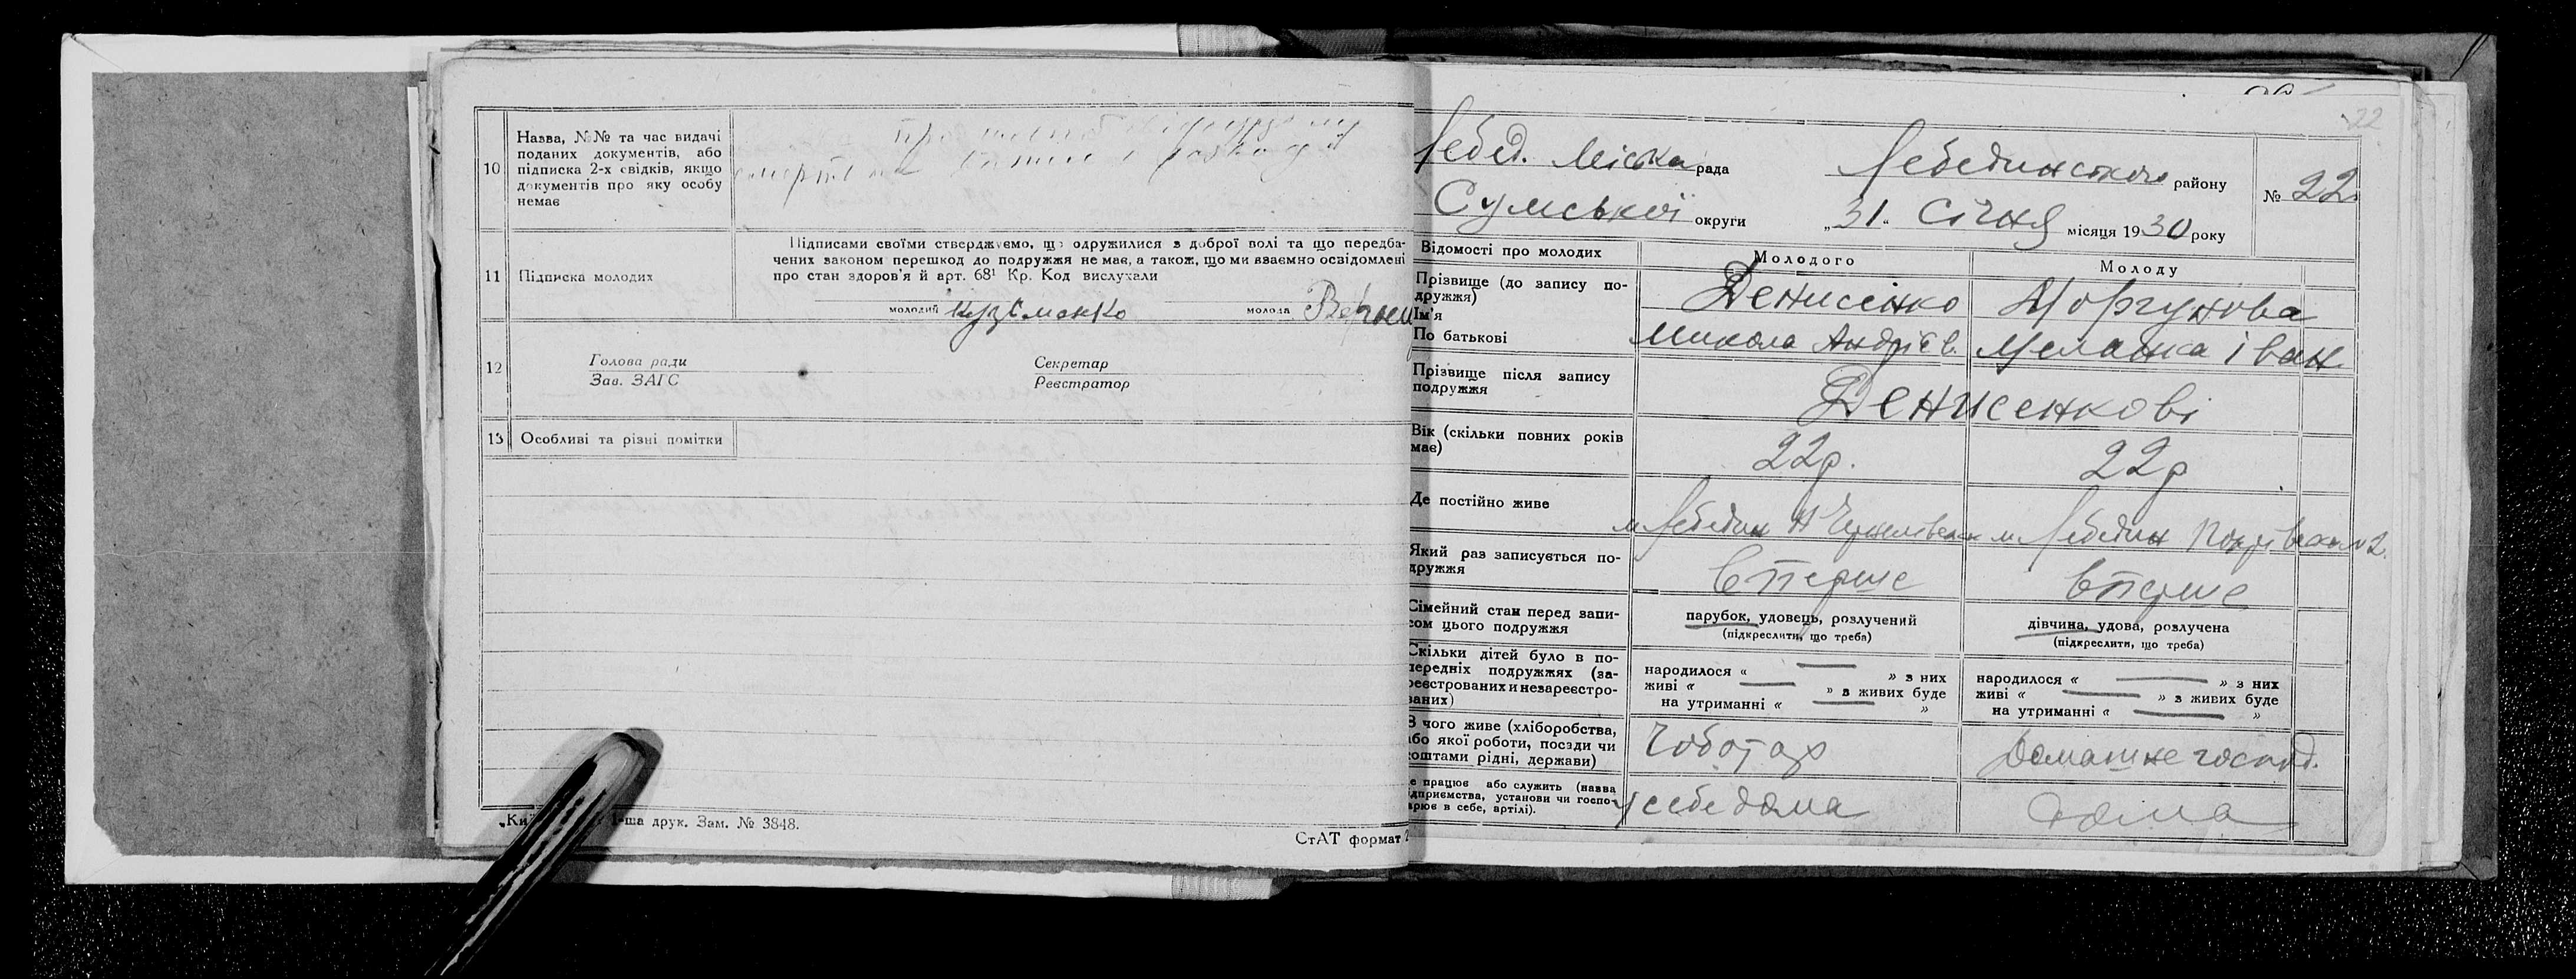 10
Назва, №№ та час видачі
поданих документів, або
підписка 2-х свідків, якщо
документів про яку особу
немає
11
Підписка молодих
Підписами своїми стверджуємо, що одружилися з доброї волі та що передба-
чених законом перешкод до подружжя не має, а також, що ми взаємно освідомлені
про стан здоров'я й арт. 68¹ Кр. Код вислухали
молодий Кузьменко молода
12
Голова ради Секретар
Зав. ЗАГС Реєстратор
13 Особливі та різні помітки
1-ша друк. Зам. № 3848.
СтАТ формат
22
Лебед. Міська рада Лебединського району
№ 22
Сумської округи „31" Січня місяця 1930 року
Відомості про молодих Молодого Молоду
Прізвище (до запису по-
дружжя)
Ім'я
По батькові
Денисенко Моргунова
Микола Андрієв. Меланка Іван
Прізвище після запису
подружжя
Денисенкові
Вік (скільки повних років
має)
22р. 22р
Де постійно живе
м. Лебедин м. Лебедин
Який раз записується по-
дружжя
вперше вперше
Сімейний стан перед запи-
сом цього подружжя
парубок, удовець, розлучений
(підкреслити, що треба)
дівчина, удова, розлучена
(підкреслити, що треба)
Скільки дітей було в по-
передніх подружжях (за-
реєстрованих и незареєстро-
ваних)
народилося « — » з них
живі « — » з живих буде
на утриманні « — »
народилося « — » з них
живі « — » з живих буде
на утриманні « — »
З чого живе (хліборобства,
або якої роботи, посади чи
коштами рідні, держави)
Чоботар Домашнє господ.
Де працює або служить (назва
підприємства, установи чи госпо-
дарює в себе, артілі).
У себе дома Дома